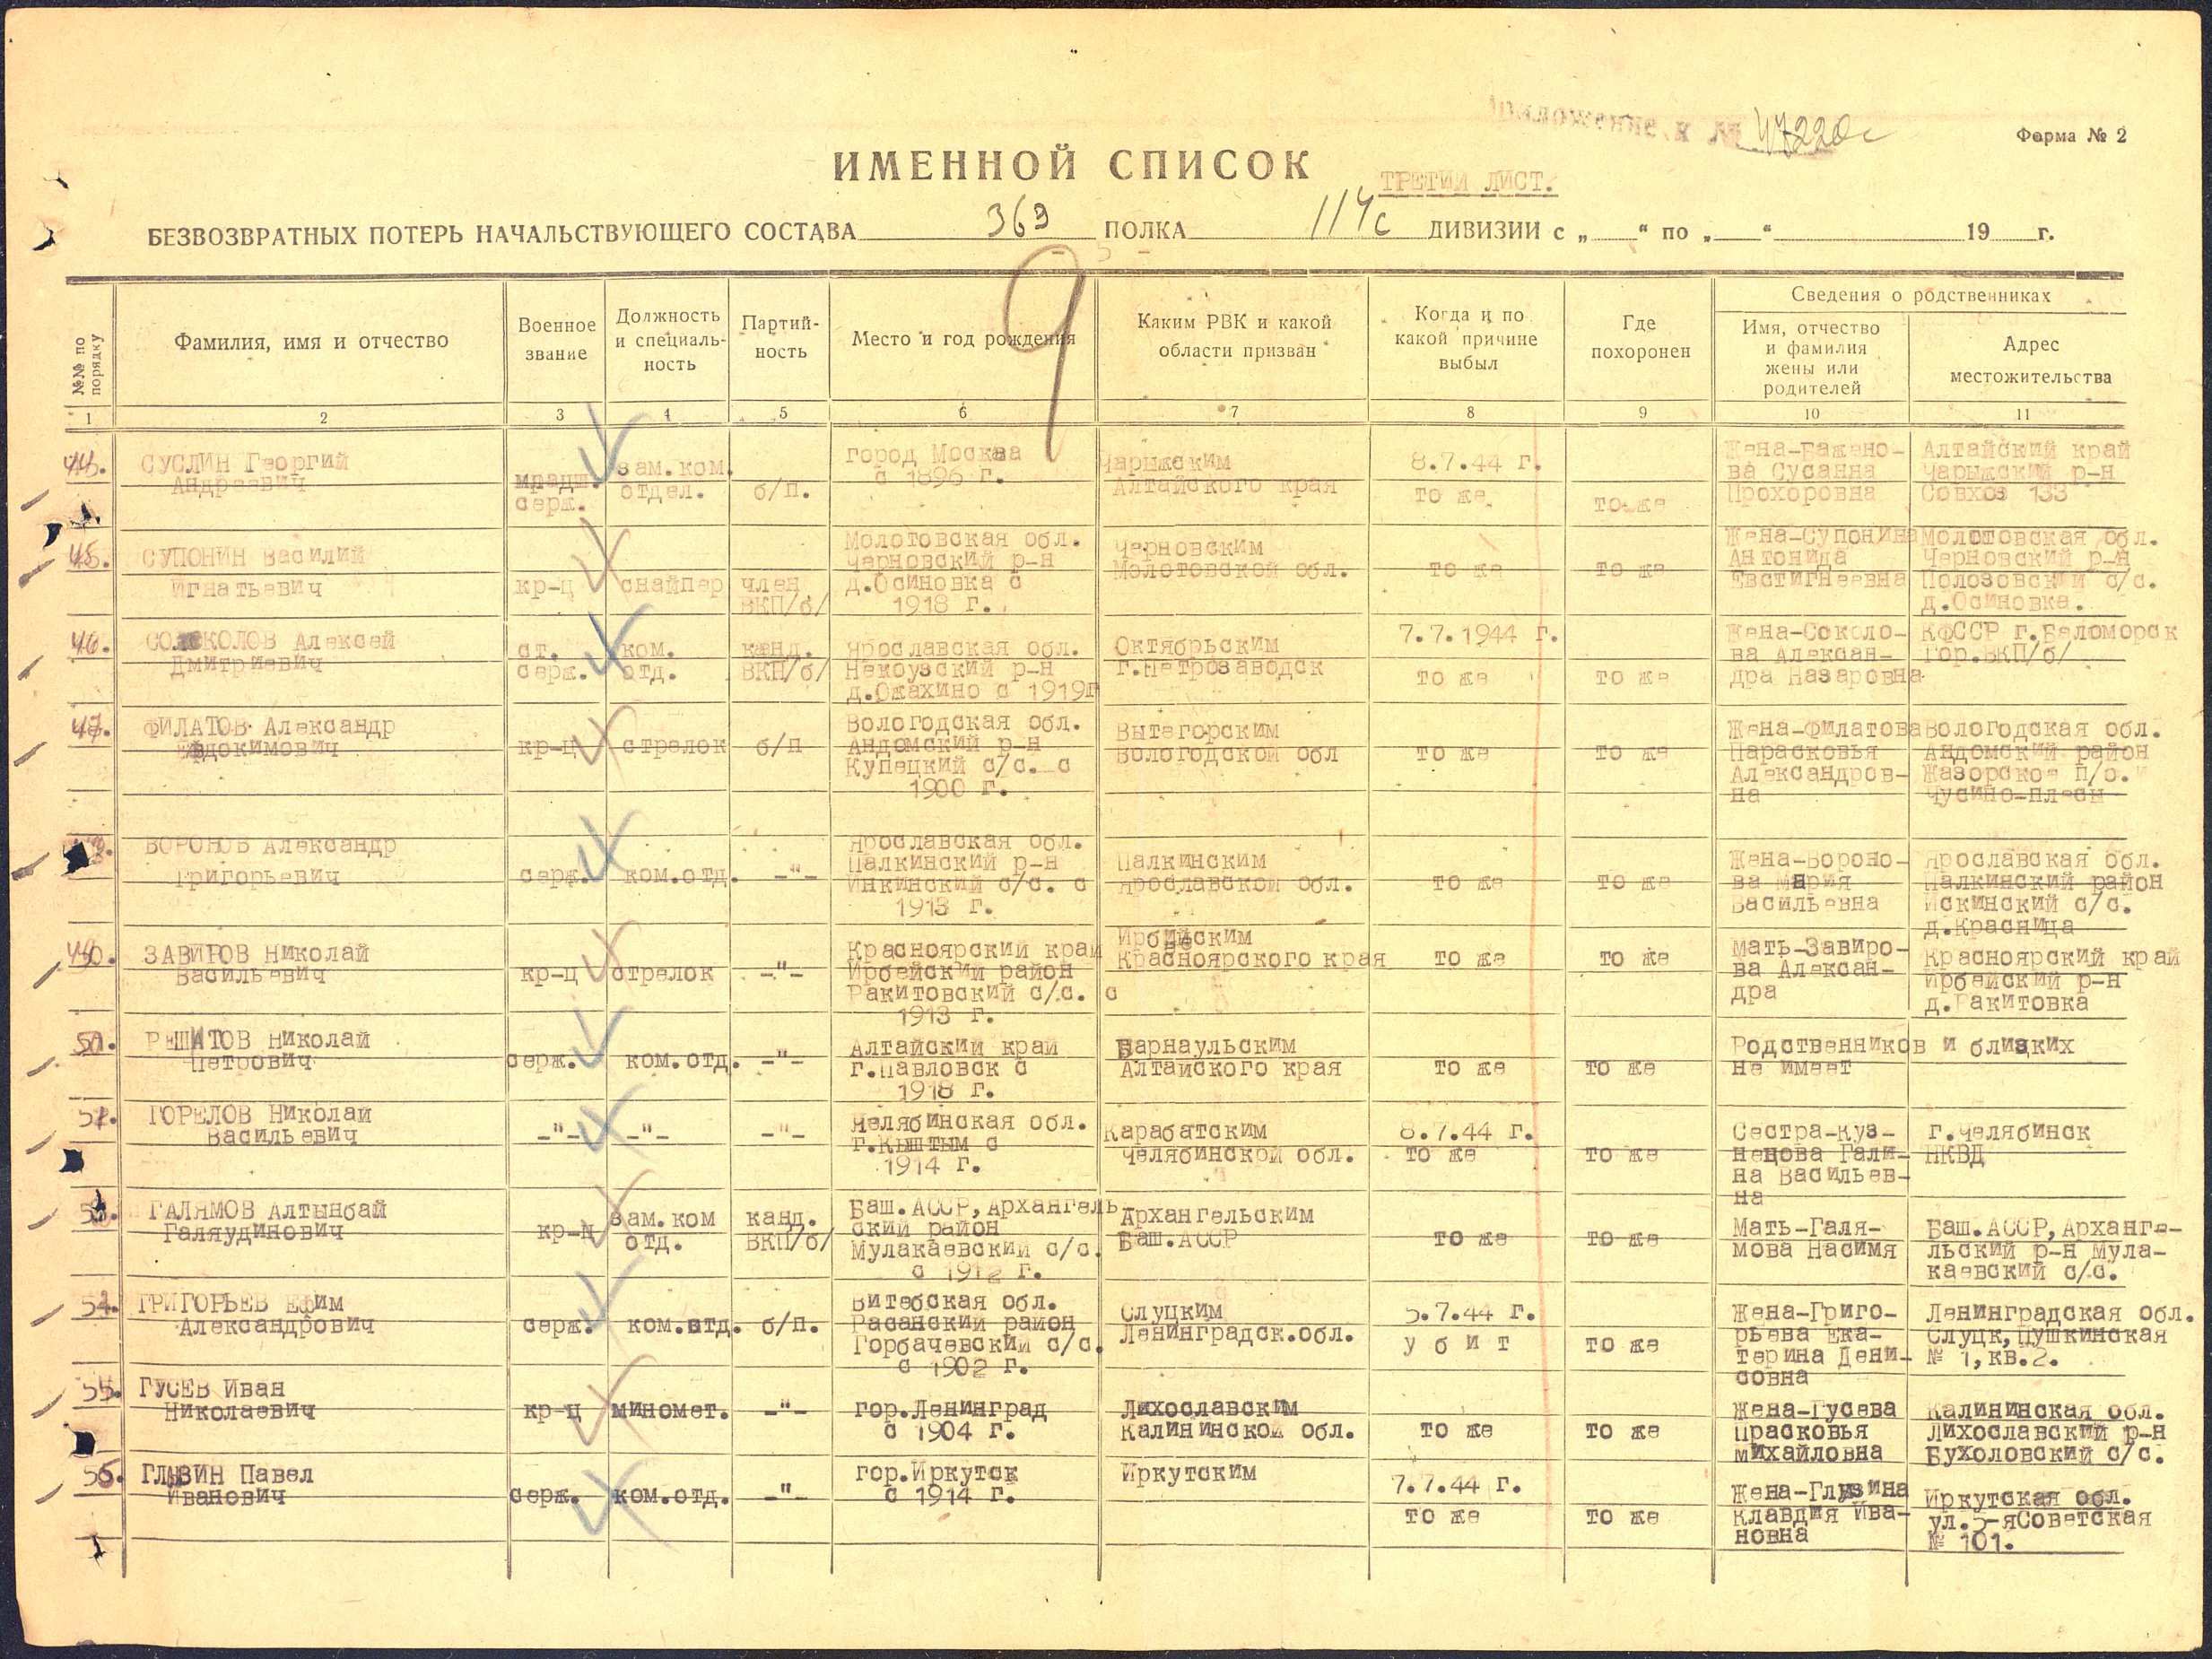 Приложение к № 47220с
Форма № 2
ИМЕННОЙ СПИСОК
ТРЕТИЙ ЛИСТ.
БЕЗВОЗВРАТНЫХ ПОТЕРЬ НАЧАЛЬСТВУЮЩЕГО СОСТАВА 363 ПОЛКА 114с ДИВИЗИИ с „ “ по „ “ 19 г.
9
№№ по порядку
Фамилия, имя и отчество
Военное звание
Должность и специаль-ность
Партий-ность
Место и год рождения
Каким РВК и какой области призван
Когда и по какой причине выбыл
Где похоронен
Сведения о родственниках
Имя, отчество и фамилия жены или родителей
Адрес местожительства
1 2 3 4 5 6 7 8 9 10 11
44.
СУСЛИН Георгий
Андреевич
младш.
серж.
зам.ком.
отдел.
б/п.
город Москва
с 1896 г.
Чарышским
Алтайского края
8.7.44 г.
то же
то же
Жена-Бажено-
ва Сусанна
Прохоровна
Алтайский край
Чарышский р-н
Совхоз 133
45.
СУПОНИН Василий
Игнатьевич
кр-ц
снайпер
член
ВКП/б/
Молотовская обл.
Черновский р-н
д.Осиновка с
1918 г.
Черновским
Молотовской обл.
то же
то же
Жена-Супонина
Антонида
Евстигнеевна
Молотовская обл.
Черновский р-н
Полозовский с/с.
д.Осиновка.
46.
СОКОЛОВ Алексей
Дмитриевич
ст.
серж.
ком.
отд.
канд.
ВКП/б/
Ярославская обл.
Некоузский р-н
д.Ожахино с 1919г
Октябрьским
г.Петрозаводск
7.7.1944 г.
то же
то же
Жена-Соколо-
ва Алексан-
дра Назаровна
КФССР г.Беломорск
Гор.ВКП/б/
47.
ФИЛАТОВ Александр
Евдокимович
кр-ц
стрелок
б/п
Вологодская обл.
Андомский р-н
Купецкий с/с. с
1900 г.
Вытегорским
Вологодской обл
то же
то же
Жена-Филатова
Парасковья
Александров-
на
Вологодская обл.
Андомский район
Жазорское п/о.
Чусино-плесы
ВОРОНОВ Александр
Григорьевич
серж.
ком.отд.
-"-
Ярославская обл.
Палкинский р-н
Инкинский с/с. с
1913 г.
Палкинским
Ярославской обл.
то же
то же
Жена-Вороно-
ва Мария
Васильевна
Ярославская обл.
Палкинский район
Искинский с/с.
д.Красница
ЗАВИРОВ Николай
Васильевич
кр-ц
стрелок
-"-
Красноярский край
Ирбейский район
Ракитовский с/с. с
1913 г.
Ирбейским
Красноярского края
то же
то же
Мать-Завиро-
ва Алексан-
дра
Красноярский край
Ирбейский р-н
д.Ракитовка
РЕШАТОВ Николай
Петрович
серж.
ком.отд.
-"-
Алтайский край
г.Павловск с
1918 г.
Барнаульским
Алтайского края
то же
то же
Родственников и близких
не имеет
ГОРЕЛОВ Николай
Васильевич
-"-
-"-
-"-
Челябинская обл.
г.Кыштым с
1914 г.
Карабатским
Челябинской обл.
8.7.44 г.
то же
то же
Сестра-Куз-
нецова Гали-
на Васильев-
на
г.Челябинск
НКВД
ГАЛЯМОВ Алтынбай
Галяудинович
кр-ц
зам.ком
отд.
канд.
ВКП/б/
Баш.АССР,Архангель-
ский район
Мулакаевский с/с.
с 1912 г.
Архангельским
Баш.АССР
то же
то же
Мать-Галя-
мова Насимя
Баш.АССР,Арханге-
льский р-н Мула-
каевский с/с.
ГРИГОРЬЕВ Ефим
Александрович
серж.
ком.отд.
б/п.
Витебская обл.
Расанский район
Горбачевский с/с.
с 1902 г.
Слуцким
Ленинградск.обл.
5.7.44 г.
у б и т
то же
Жена-Григо-
рьева Ека-
терина Дени-
совна
Ленинградская обл.
Слуцк,Пушкинская
№ 1,кв.2.
ГУСЕВ Иван
Николаевич
кр-ц
миномет.
-"-
гор.Ленинград
с 1904 г.
Лихославским
Калининской обл.
то же
то же
Жена-Гусева
Прасковья
Михайловна
Калининская обл.
Лихославский р-н
Бухоловский с/с.
ГЛЫЗИН Павел
Иванович
серж.
ком.отд.
-"-
гор.Иркутск
с 1914 г.
Иркутским
7.7.44 г.
то же
то же
Жена-Глызина
Клавдия Ива-
новна
Иркутская обл.
ул.5-яСоветская
№ 101.